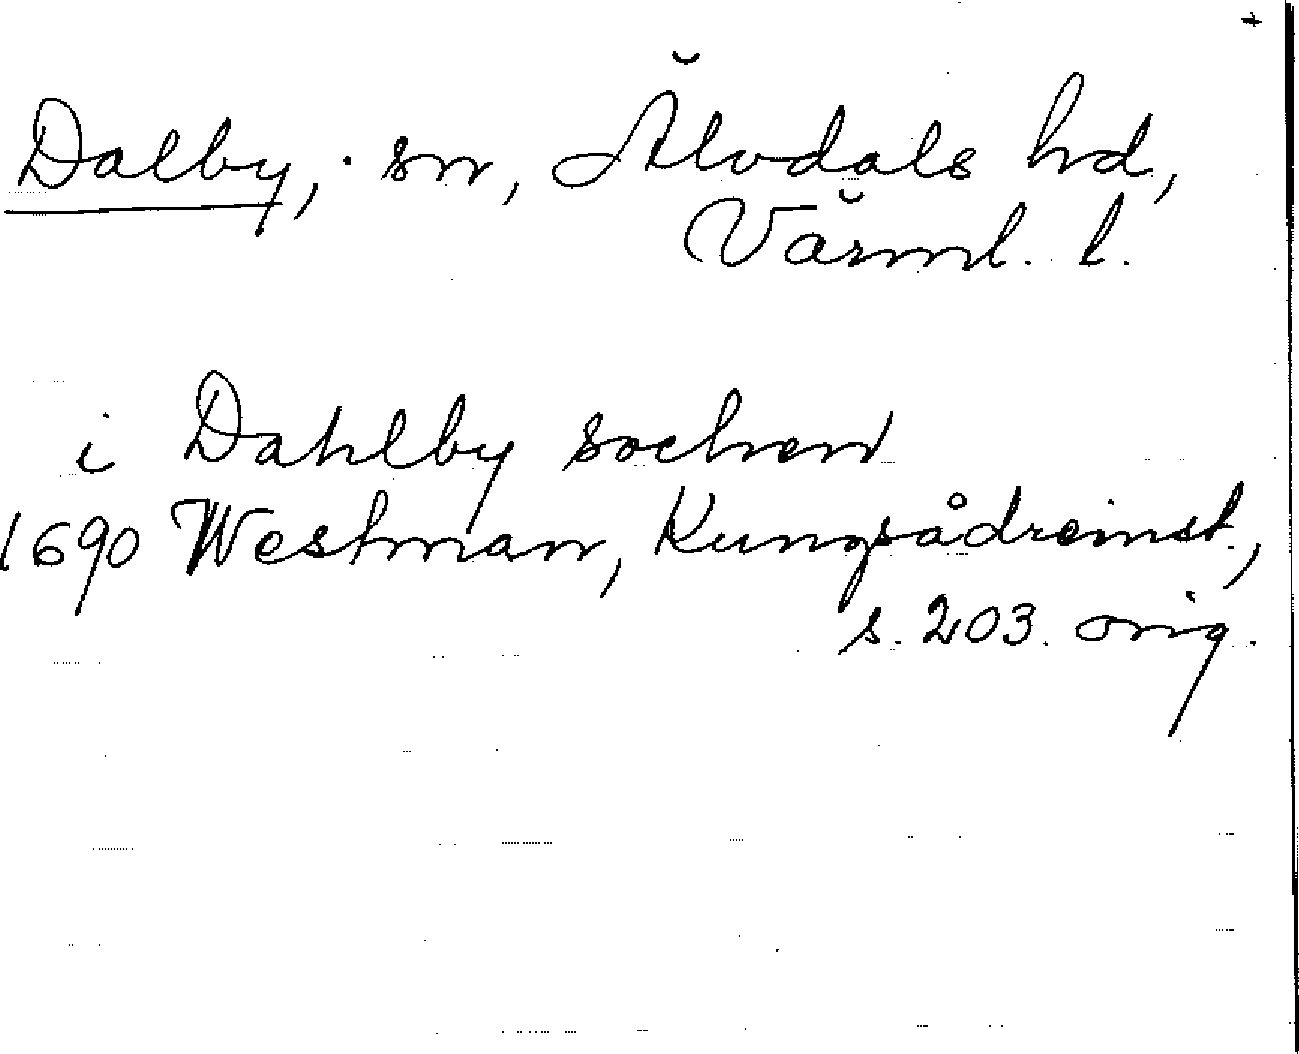 +
Dalby, sn, Älvdals hd,
Värml. l.
i Dahlby sochen
1690 Westman, Kungsådreinst.,
s. 203. orig.